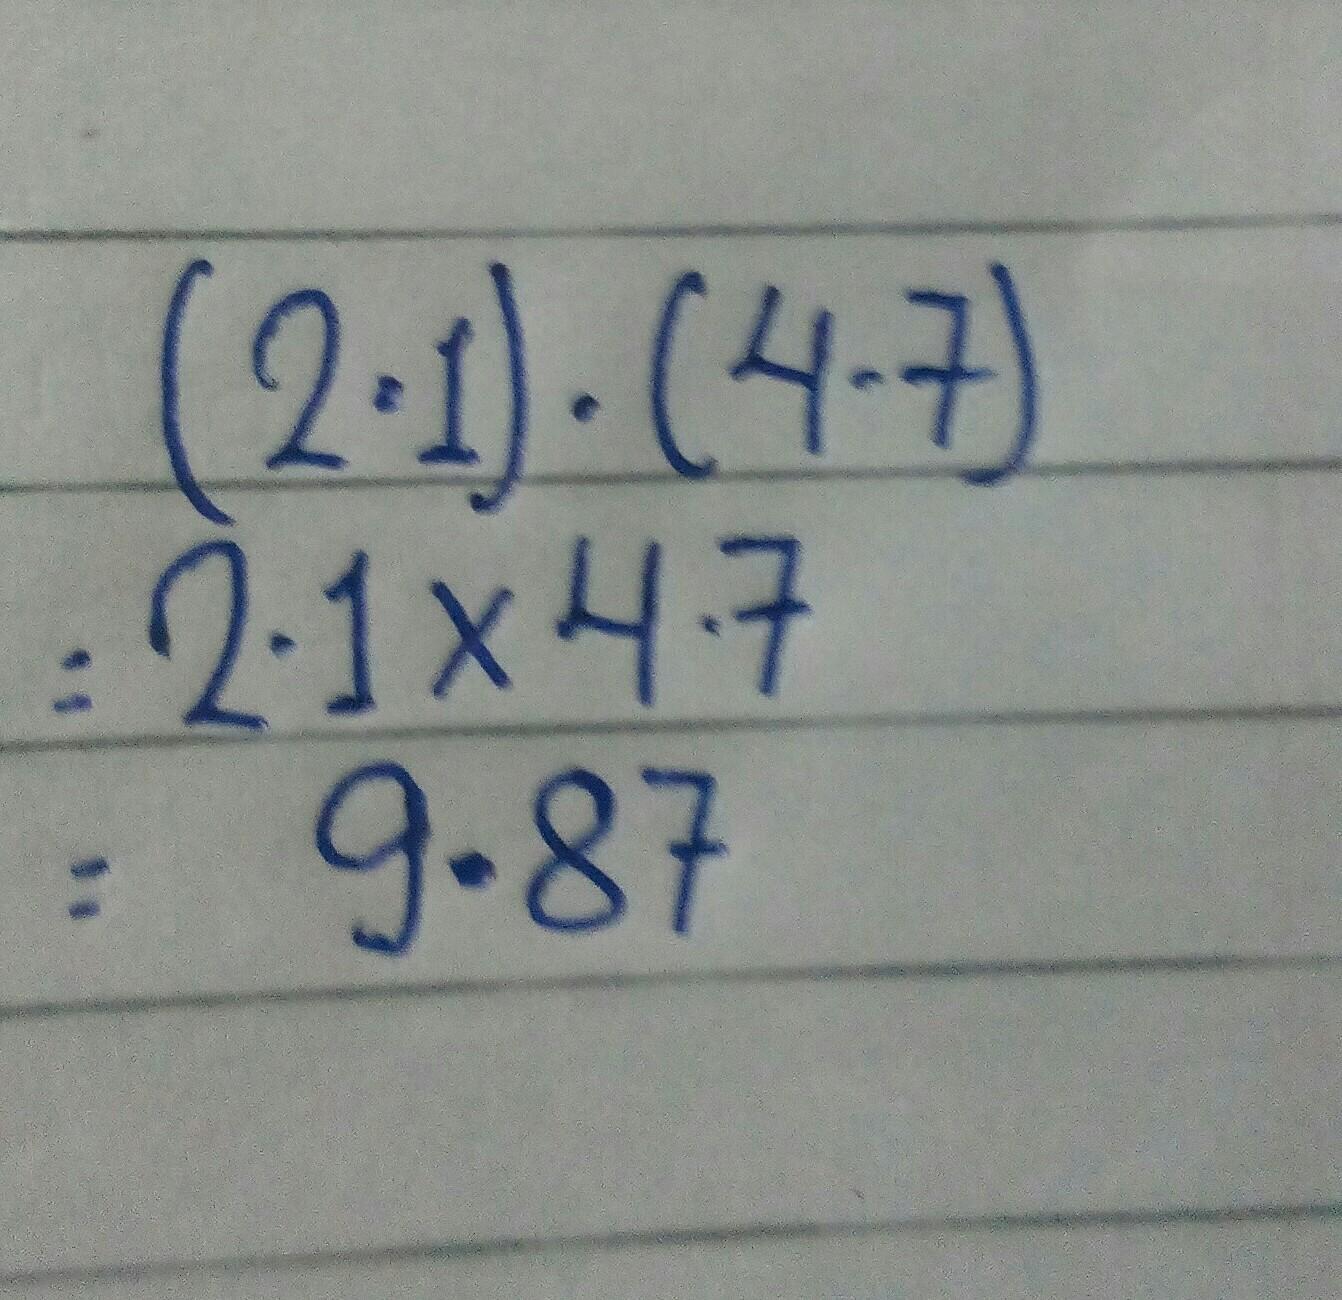 (2·1)·(4·7)
=2·1×4.7
= 9·87